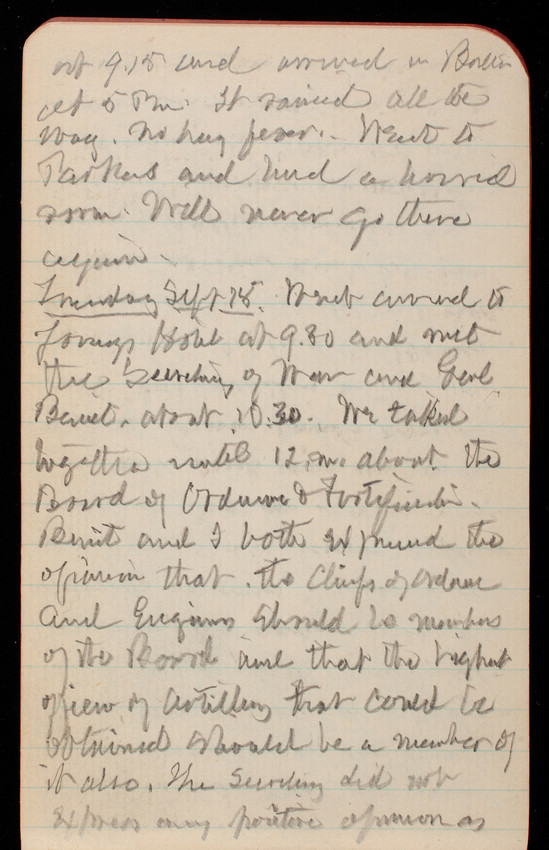 at 9.15 and arrived in Boston
at 5 P.m. It rained all the
way. No hay fever. Went to
Parkers and had a horrid
room. Will never go there
again.
Tuesday Sept 18. Went around to
Youngs Hotel at 9.30 and met
the Secretary of War and Genl
Benet, about 10.30. We talked
together until 12, m. about the
Board of Ordnance & Fortification.
Benet and I both expressed the
opinion that the Chiefs of Ordnance
and Engineers should be members
of the Board and that the highest
officer of artillery that could be
obtained should be a member of
it also. The Secretary did not
express any positive opinion as